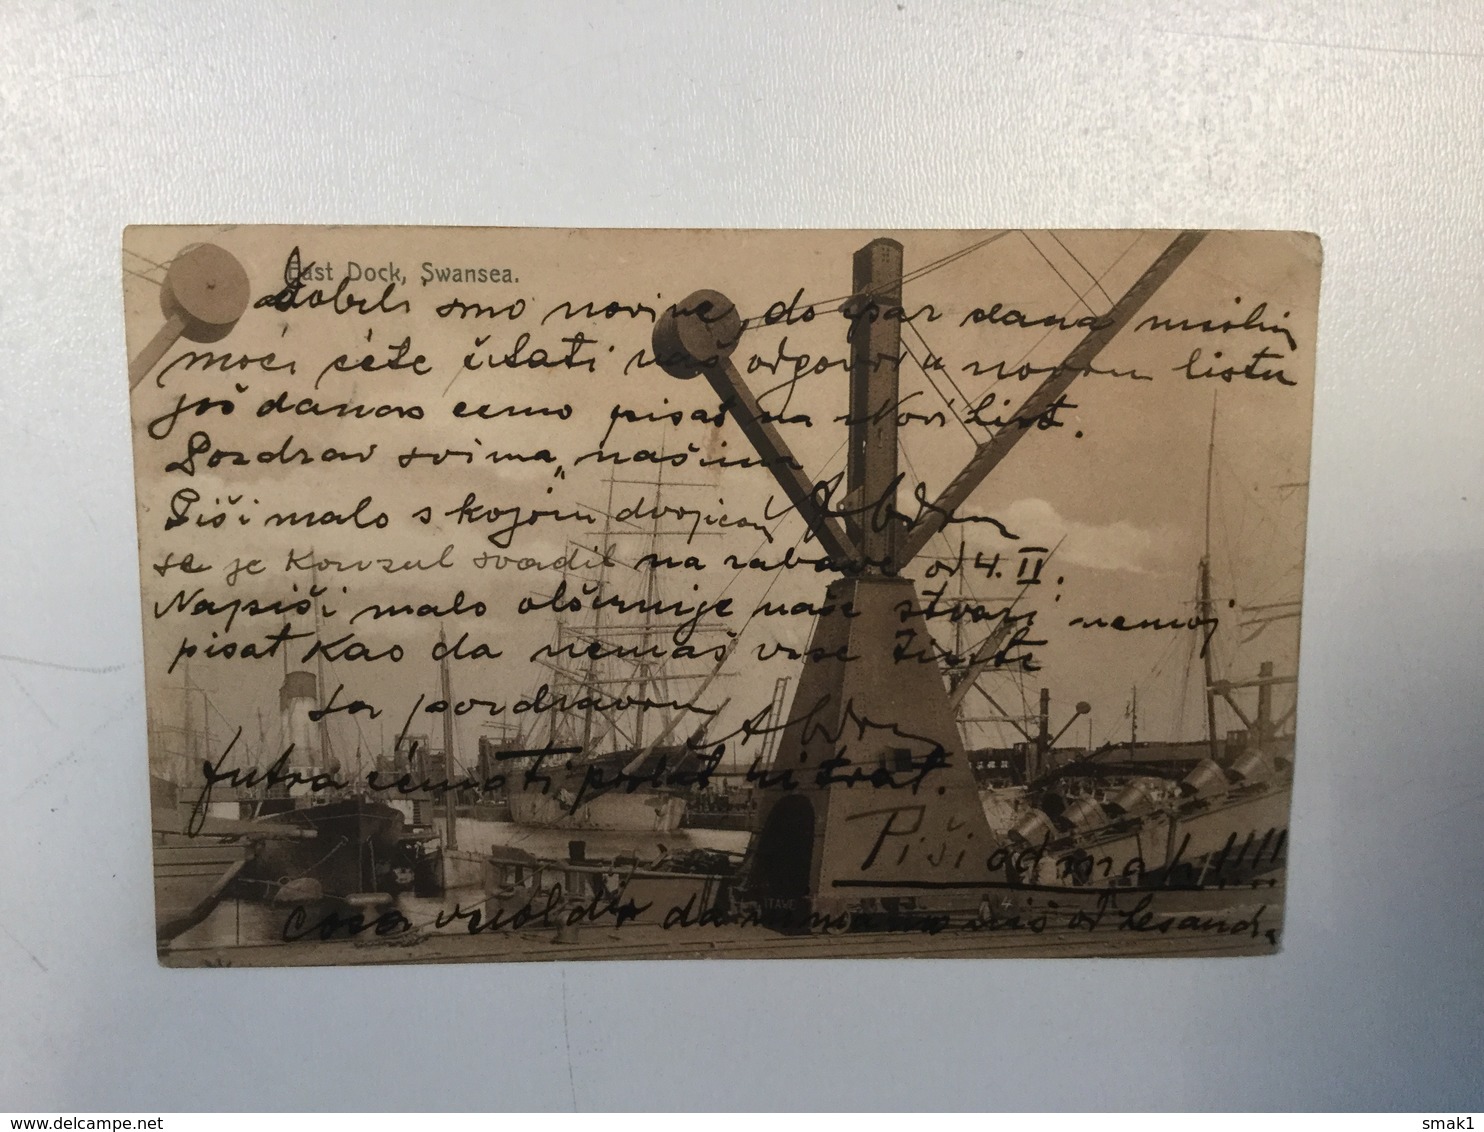 East Dock, Swansea.
Dobili smo novine, do par dana mislim
moći ćete čitati naš odgovor u novom listu
još danas ćemo pisat na Novi List.
Pozdrav svima „našima
Piši malo s kojom dvojicom
se je Konzul svadil na zabave od 4. II.
Napiši malo obširnije naše stvari nemoj
pisat kao da nemaš vrše
sa pozdravom
Jutra ćemo ti poslat
Piši odmah!!!!
cosa vuol dir da nemamo niš od
ITAVE 4
delcampe.net
smak1